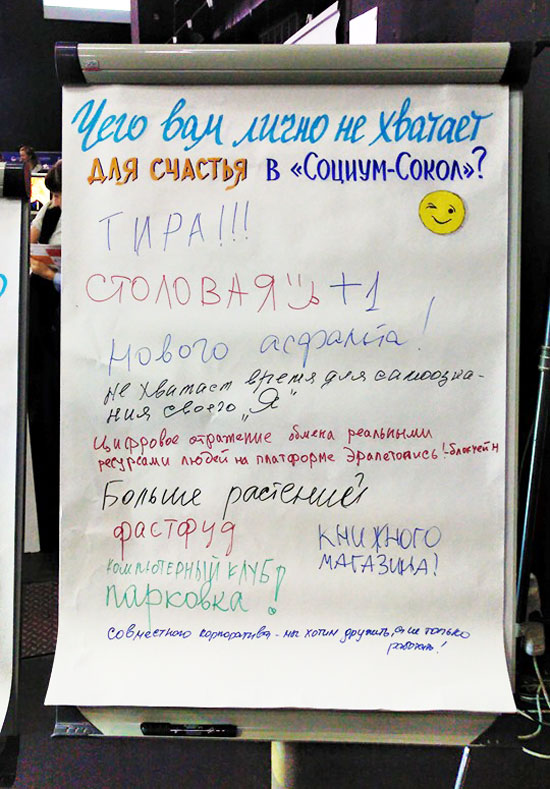 Чего вам лично не хватает
для счастья в «Социум-Сокол»?
ТИРА!!!
СТОЛОВАЯ +1
Нового асфальта!
не хватает время для самоозна-
ния своего „Я"
Цифровое отражение обмена реальными
ресурсами людей на платформе Эралетопись!-блокчейн
Больше растений
фастфуд
КНИЖНОГО
МАГАЗИНА!
КОМПЬЮТЕРНЫЙ КЛУБ!
парковка!
совместного корпоратива - мы хотим дружить, а не только
работать!